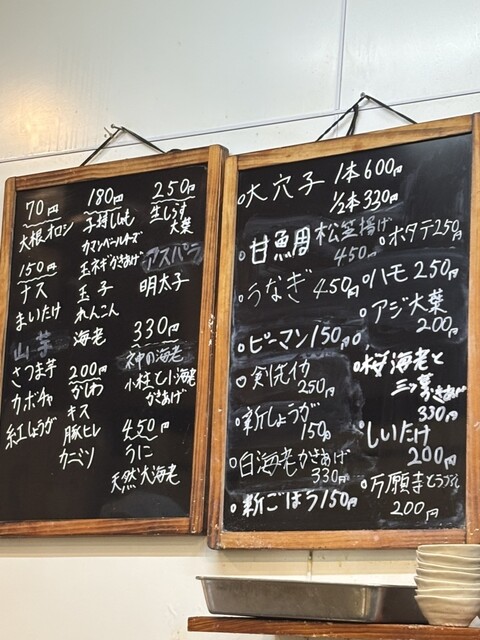 70円
大根オロシ
150円
ナス
まいたけ
山芋
さつま芋
カボチャ
紅しょうが
180円
子持ししゃも
カマンベールチーズ
玉ネギかきあげ
玉子
れんこん
海老
200円
かしわ
キス
豚ヒレ
カニツメ
250円
生しらす
大葉
アスパラ
明太子
330円
神の海老
小柱と小海老
かきあげ
450円
うに
天然大海老
大穴子 1本600円
1/2本330円
甘鯛松笠揚げ
450円
うなぎ 450円
ピーマン150円
剣先イカ
250円
新しょうが
150円
白海老かきあげ
330円
新ごぼう150円
ホタテ250円
ハモ250円
アジ大葉
200円
桜海老と
三つ葉かきあげ
330円
しいたけ
200円
万願寺とうがらし
200円